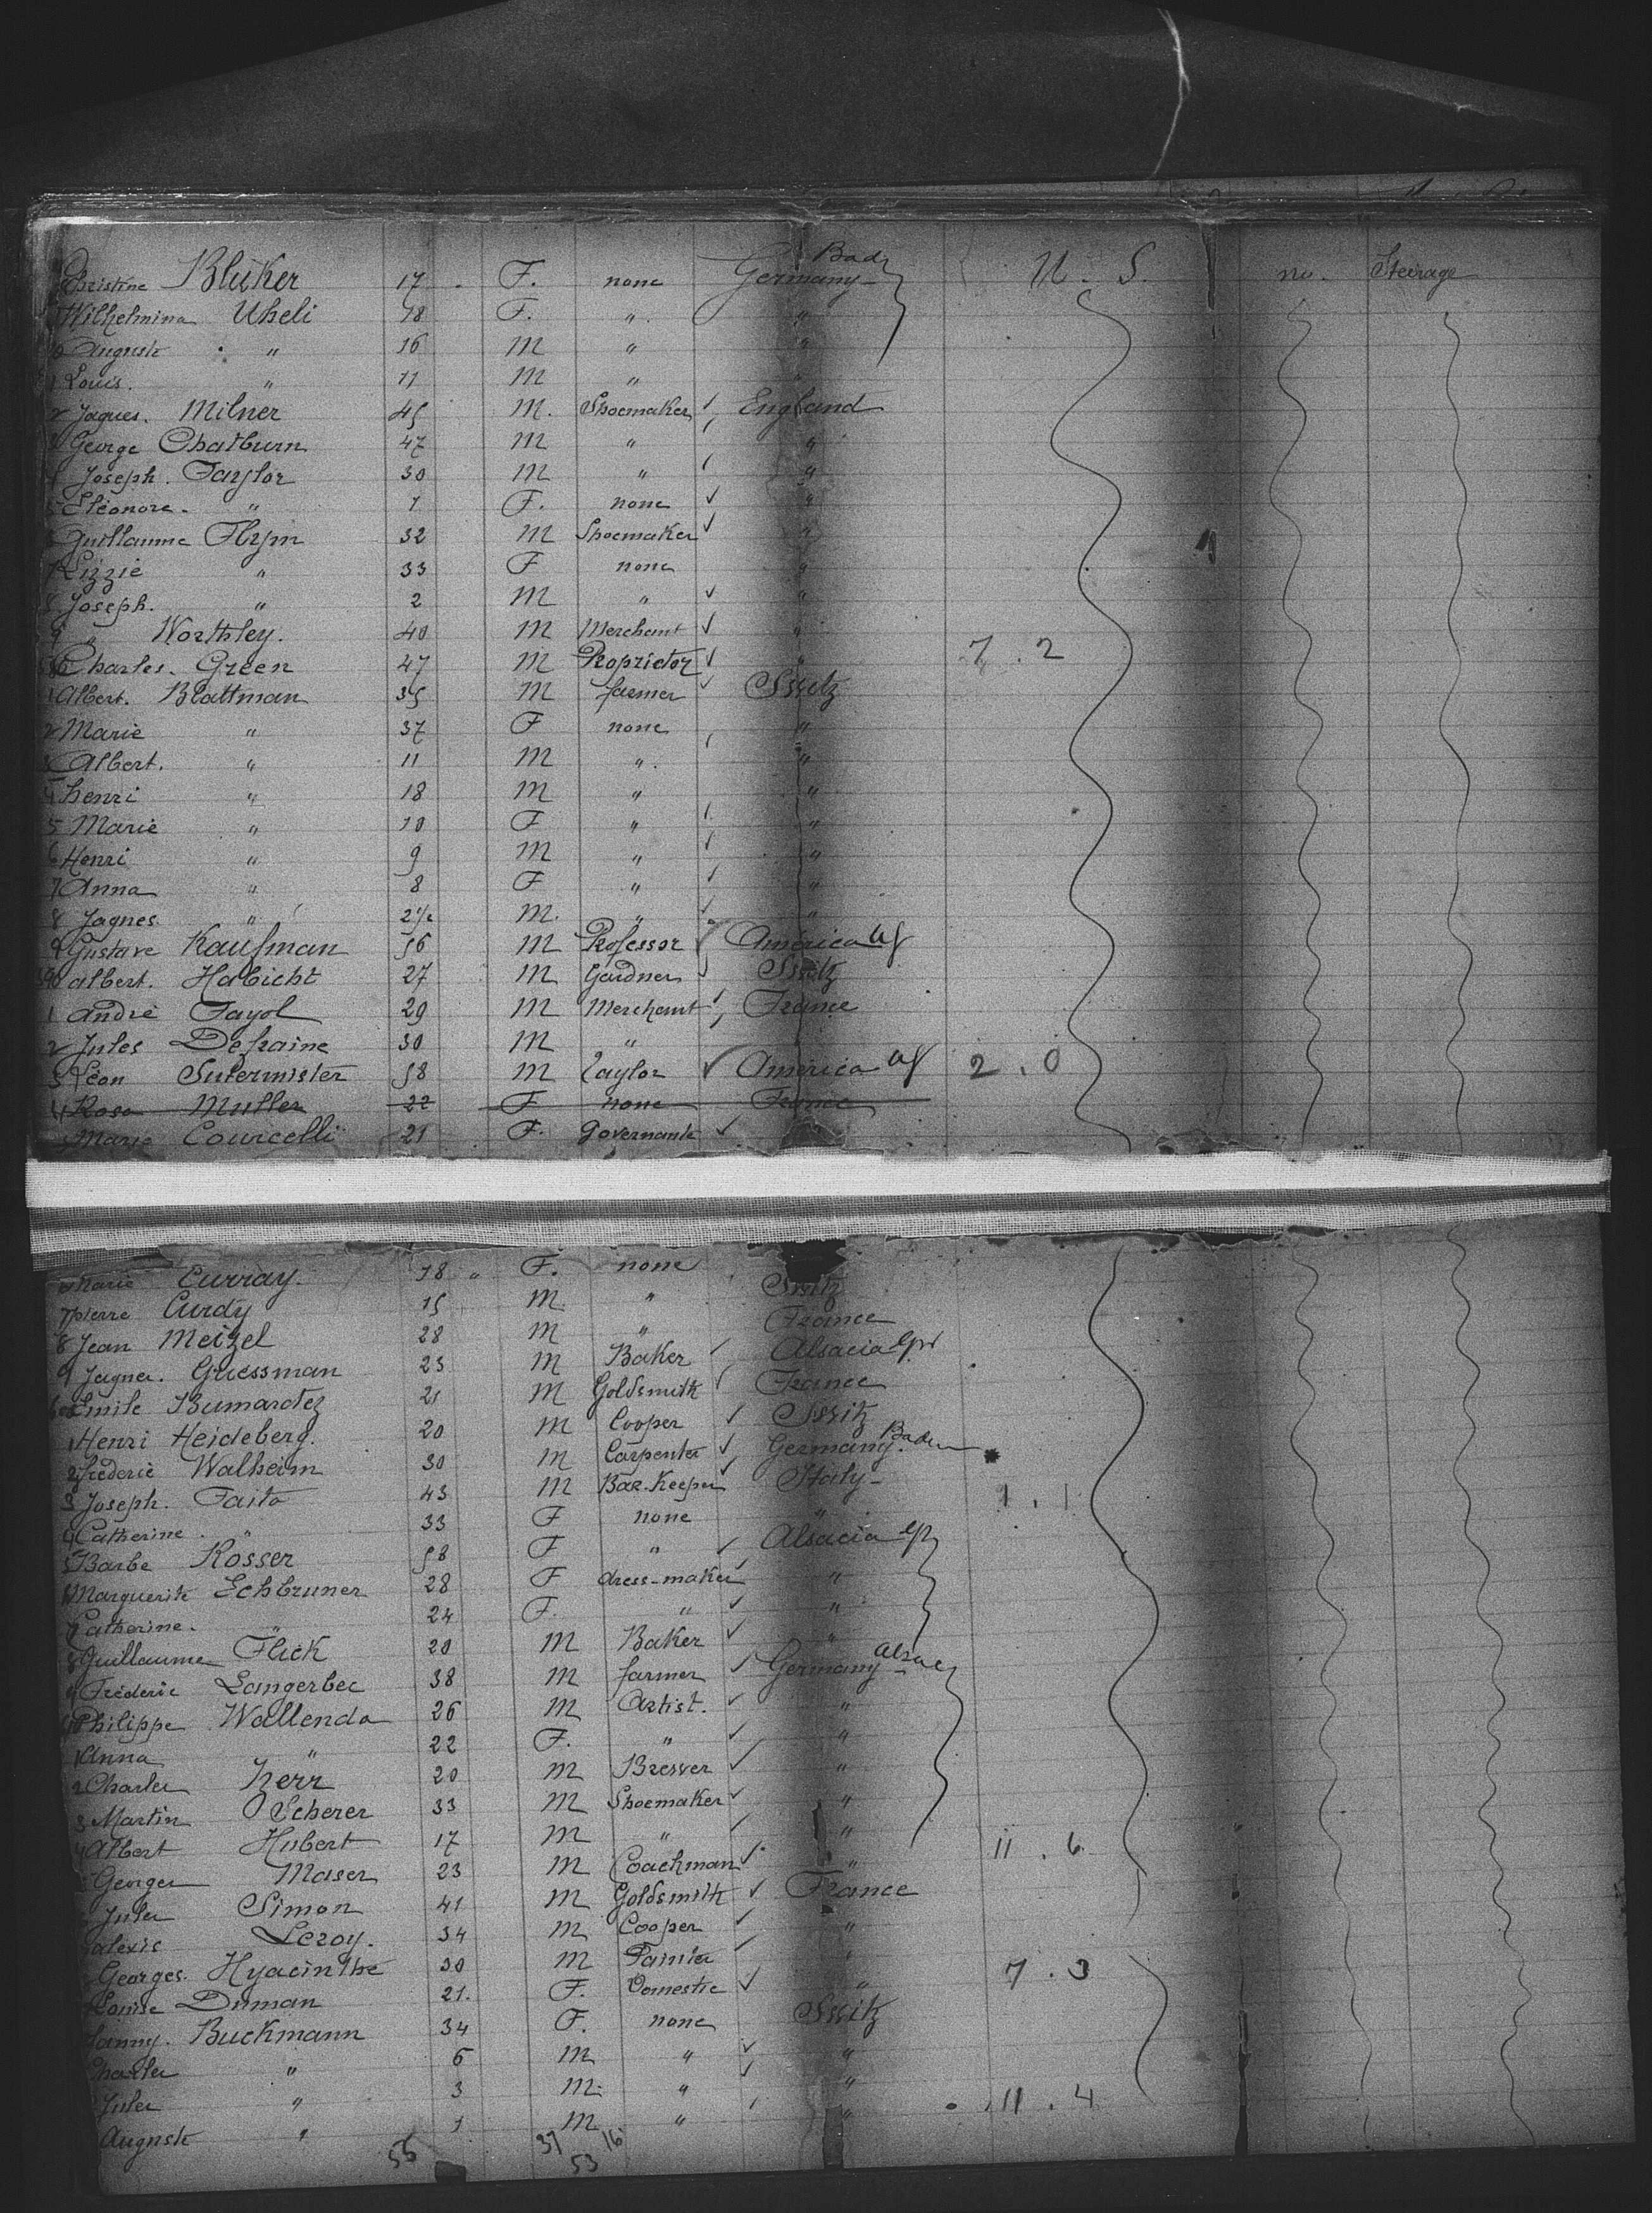 Christine Bluker 17 F. none Germany Bad U. S. no. Steerage
Wilhelmina Uheli 18 F. " "
Auguste " 16 M " "
1 Louis. " 11 M " "
2 Jaques. Milner 45 M. Shoemaker England
3 George Chatburn 47 M " "
4 Joseph. Taylor 30 M " "
5 Eléonore. " 1 F. none "
6 Guillaume Flynn 32 M Shoemaker "
7 Lizzie " 33 F none "
8 Joseph. " 2 M " "
9 " Worthley. 40 M Merchant "
Charles. Green 47 M Proprietor " 7. 2
1 Albert. Blattman 35 M farmer Switz
2 Marie " 37 F none "
3 Albert. " 11 M " "
4 henri " 18 M " "
5 Marie " 10 F " "
6 Henri " 9 M " "
7 Anna " 8 F " "
8 Jaques. " 2 1/2 M. " "
9 Gustave Kaufman 56 M Professor America
albert. Habicht 27 M Gardner Switz
1 André Fayol 29 M Merchant France
2 Jules Defraine 30 M "
3 Léon Sutermister 58 M Taylor America 2. 0
4 Rosa Muller 22 F none France
Marie Courcelli 21 F. Governante
Marie Curray. 18 " F. none
7 pierre Curdy 15 M. " Switz
8 Jean Meizel 28 M " France
9 Jaques. Guessman 23 M Baker Alsacia
Emile Bumardez 21 M Goldsmith France
1 Henri Heideberg. 20 M Cooper Switz
2 fréderic Walheim 30 M Carpenter Germany. Baden
3 Joseph. Faito 43 M Bar-Keeper Italy 1. 1
4 Catherine. " 33 F none "
5 Barbe Rosser 58 F " Alsacia
Marguerite Schbruner 28 F dress-maker "
7 Catherine. " 24 F. " "
8 Guillaume Flick 20 M Baker "
9 Fréderic Langerbec 38 M farmer Germany Alsac
Philippe Wallenda 26 M Artist. "
1 Anna " 22 F. " "
2 Charles herr 20 M Brewer "
3 Martin Scherer 33 M Shoemaker "
4 Albert Hubert 17 M " " 11. 6
Georges Maser 23 M Coachman "
Jules Simon 41 M Goldsmith France
alexis Leroy. 34 M Cooper "
Georges. Hyacinthe 30 M Painter " 7. 3
Louise Duman 21. F. Domestic "
fanny. Buckmann 34 F. none Switz
Charles " 6 M " "
Jules " 3 M. " "
Auguste " 1 M " " 11. 4
55 37 16
53